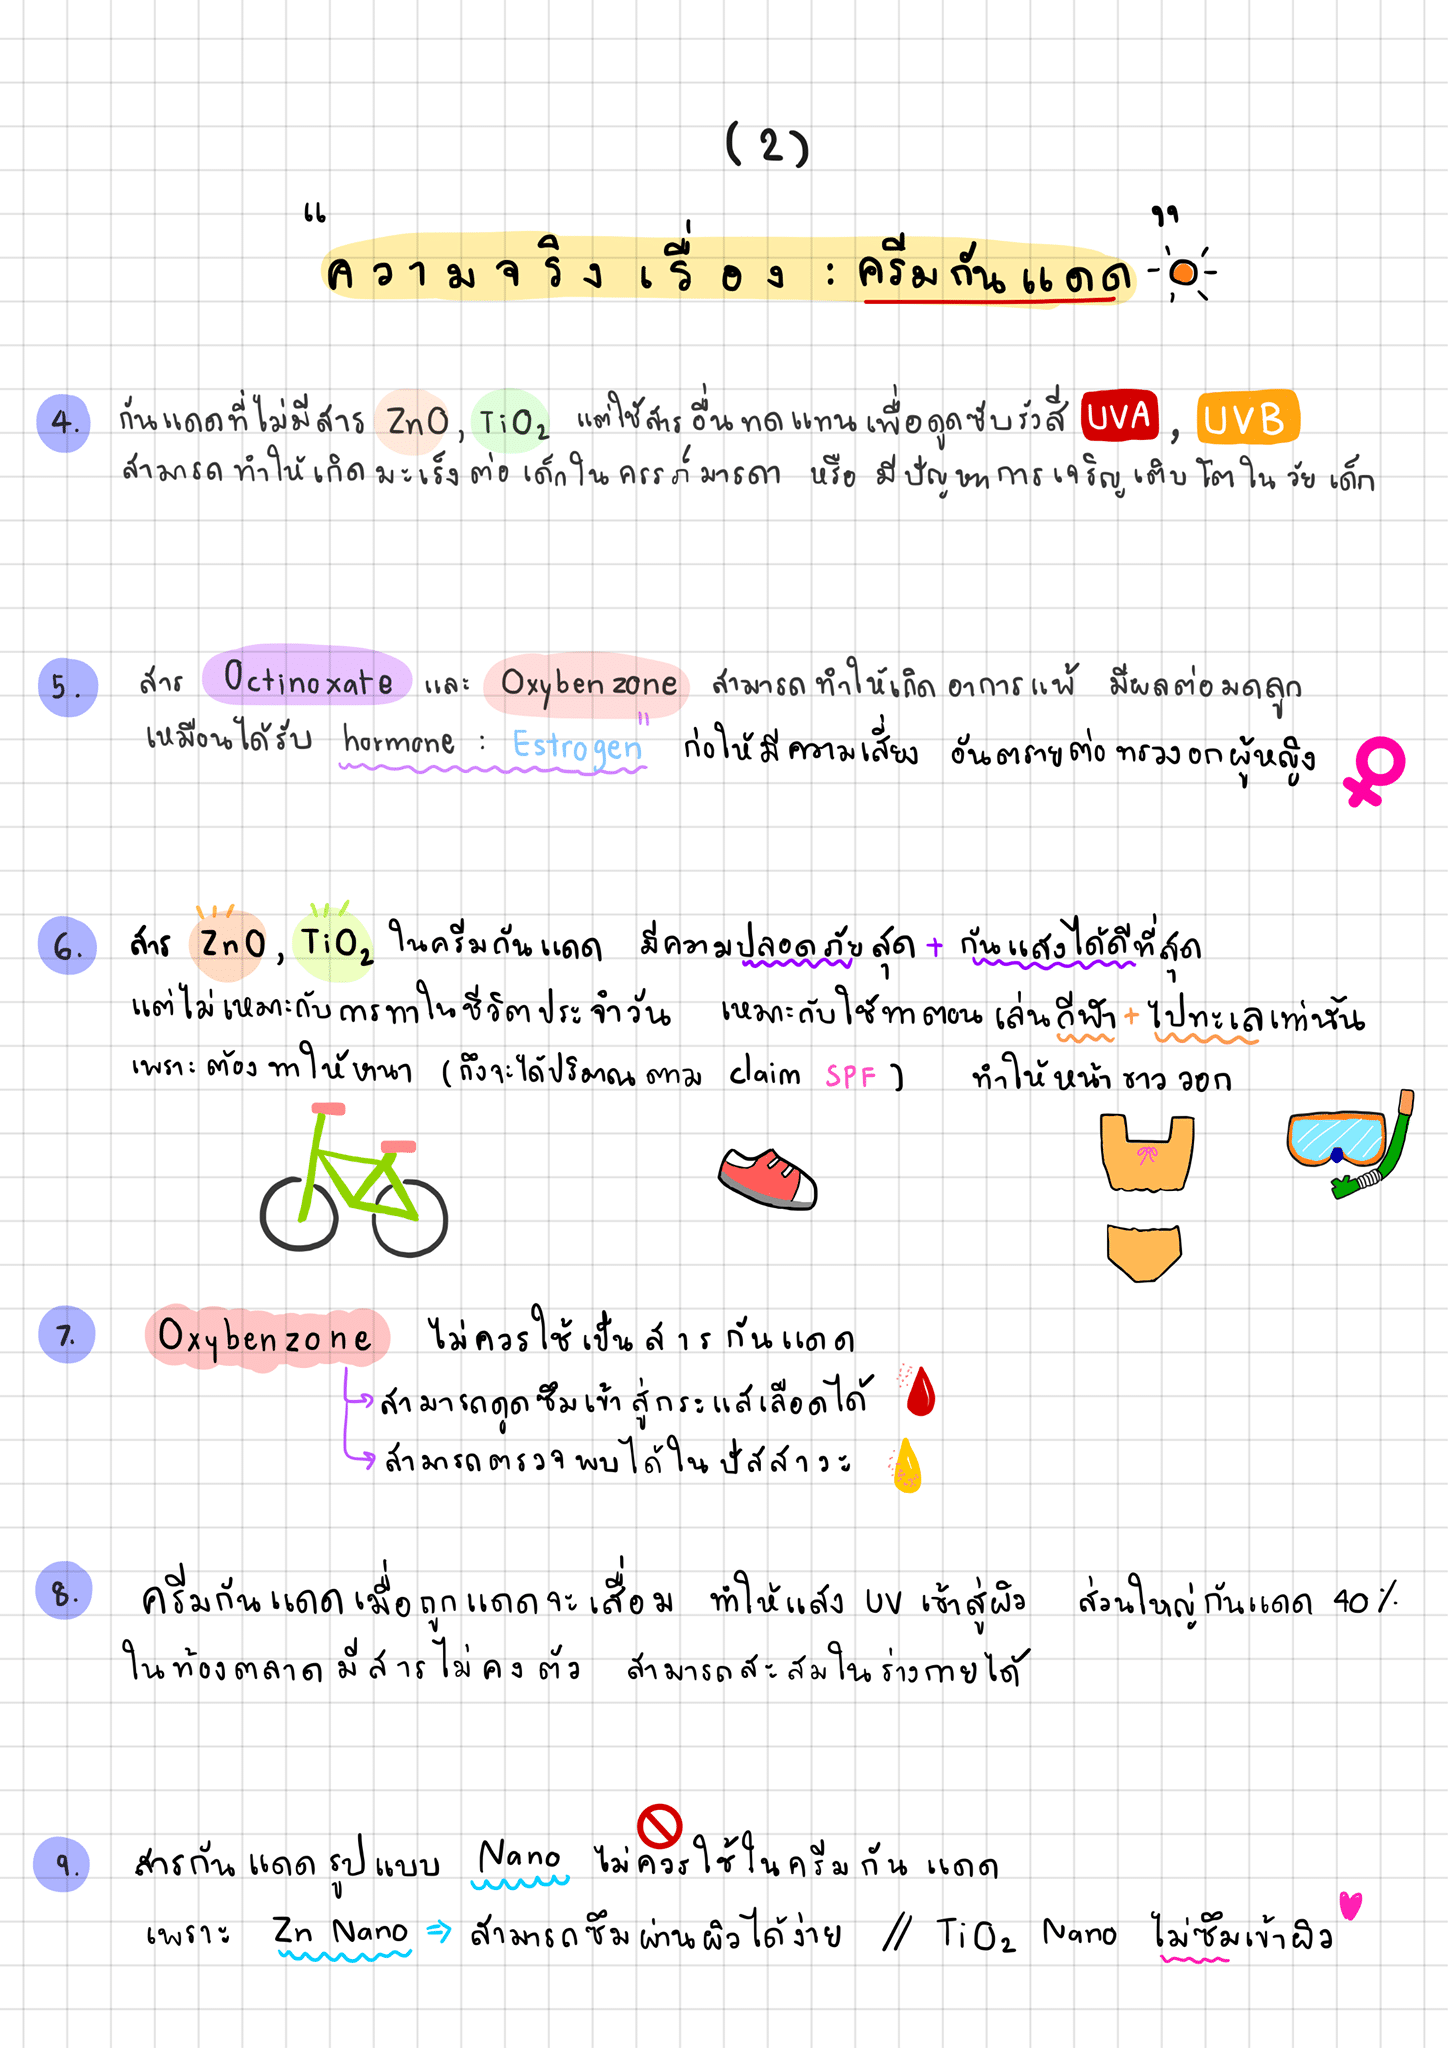 (2)
“ความจริงเรื่อง : ครีมกันแดด”
4. กันแดดที่ไม่มีสาร ZnO, TiO2 แต่ใช้สารอื่นทดแทนเพื่อดูดซับรังสี UVA, UVB
สามารถทำให้เกิดมะเร็งต่อเด็กในครรภ์มารดา หรือ มีปัญหาการเจริญเติบโตในวัยเด็ก
5. สาร Octinoxate และ Oxybenzone สามารถทำให้เกิดอาการแพ้ มีผลต่อมดลูก
เหมือนได้รับ hormone : Estrogen" ก่อให้มีความเสี่ยง อันตรายต่อทรวงอกผู้หญิง
6. สาร ZnO, TiO2 ในครีมกันแดด มีความปลอดภัยสุด + กันแสงได้ดีที่สุด
แต่ไม่เหมาะกับการทาในชีวิตประจำวัน เหมาะกับใช้ทาตอนเล่นกีฬา + ไปทะเลเท่านั้น
เพราะต้องทาให้หนา (ถึงจะได้ปริมาณตาม claim SPF) ทำให้หน้าขาววอก
7. Oxybenzone ไม่ควรใช้เป็นสารกันแดด
สามารถดูดซึมเข้าสู่กระแสเลือดได้
สามารถตรวจพบได้ในปัสสาวะ
8. ครีมกันแดดเมื่อถูกแดดจะเสื่อม ทำให้แสง UV เข้าสู่ผิว ส่วนใหญ่กันแดด 40%
ในท้องตลาดมีสารไม่คงตัว สามารถสะสมในร่างกายได้
9. สารกันแดดรูปแบบ Nano ไม่ควรใช้ในครีมกันแดด
เพราะ Zn Nano ⇒ สามารถซึมผ่านผิวได้ง่าย // TiO2 Nano ไม่ซึมเข้าผิว